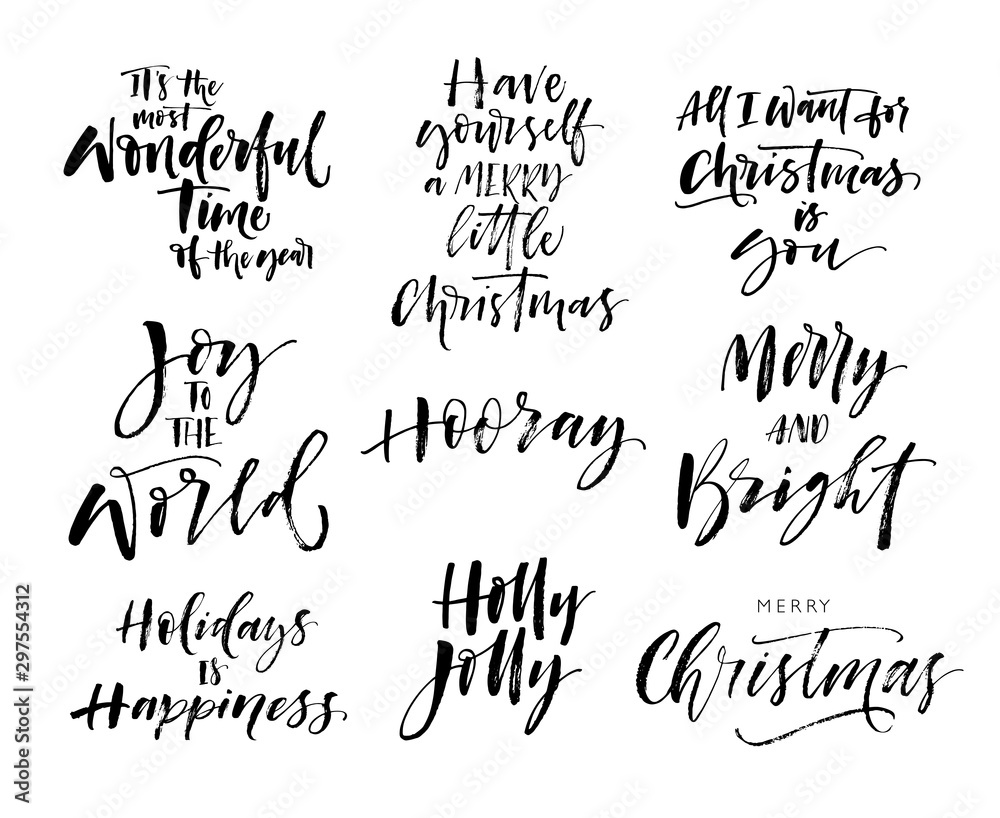 It's the
most
Wonderful
Time
of the year
Have
yourself
a MERRY
little
Christmas
All I Want for
Christmas
is
you
Joy
TO
THE
World
Hooray
Merry
AND
Bright
Holidays
IS
Happiness
Holly
Jolly
MERRY
Christmas
Adobe Stock | #297554312